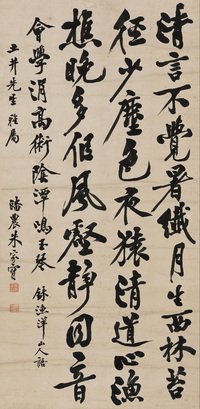 清言不覺暑纖月生西林苔
徑少塵色夜猿清道心漁
樵晚多侶風壑靜回音
會學涓高術陰潭鳴玉琴 錄漁洋山人詩
土井先生雅屬
農朱家寶